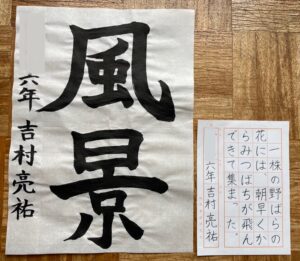 風景
六年 吉村亮祐
一株の野ばらの
花には、朝早くか
らみつばちが飛ん
できて集まった。
六年 吉村亮祐